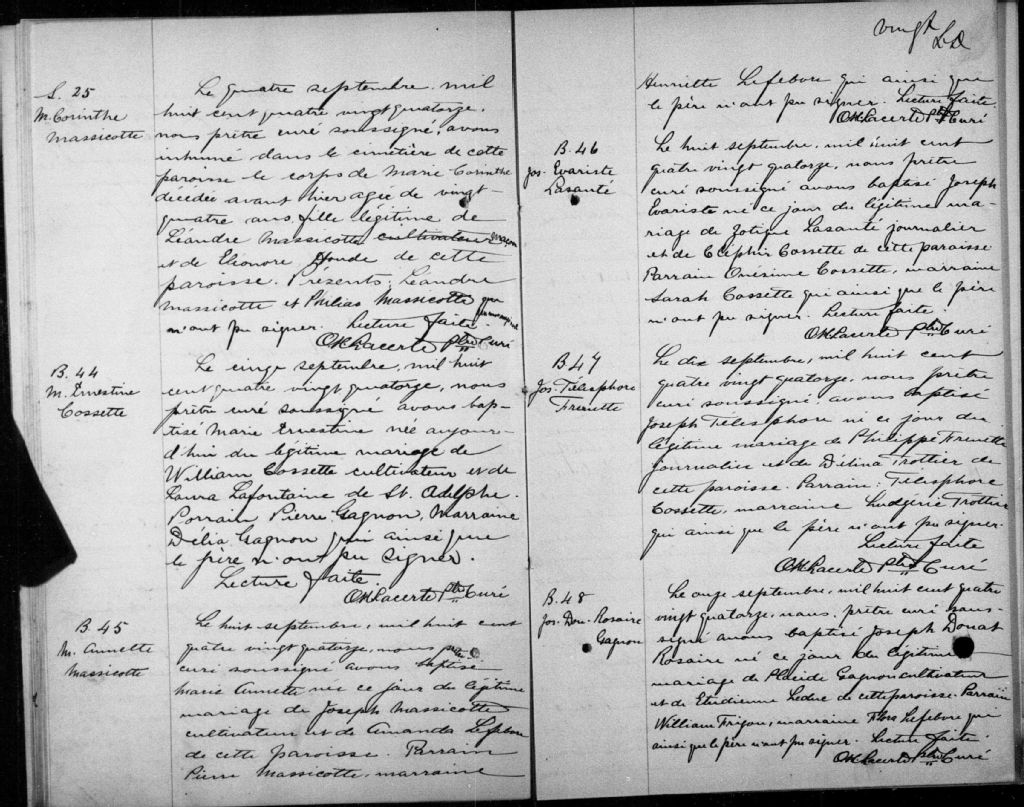 S. 25
M. Corinthe
Massicotte
Le quatre septembre mil
huit cent quatre vingt quatorze,
nous prêtre curé soussigné, avons
inhumé dans le cimetière de cette
paroisse le corps de Marie Corinthe
décédée avant hier agée de vingt-
quatre ans, fille légitime de
Léandre Massicotte cultivateur
et de Elionore de cette
paroisse. Présents: Léandre
Massicotte et Philias Massicotte qui
n'ont pu signer. Lecture faite.
O.H. Lacerte Ptre Curé
B. 44
M. Ernestine
Cossette
Le cinq septembre, mil huit
cent quatre vingt quatorze, nous
prêtre curé soussigné avons bap-
tisé Marie Ernestine née aujour-
d'hui du légitime mariage de
William Cossette cultivateur et de
Laura Lafontaine de St. Adelphe.
Parrain Pierre Gagnon, Marraine
Délia Gagnon qui ainsi que
le père n'ont pu signer.
Lecture faite.
O.H. Lacerte Ptre Curé
B. 45
M. Annette
Massicotte
Le huit septembre, mil huit cent
quatre vingt quatorze, nous ptre
curé soussigné avons baptisé
Marie Annette née ce jour du légitime
mariage de Joseph Massicotte
cultivateur et de Amanda Lefebvre
de cette paroisse. Parrain
Pierre Massicotte, marraine
vingt
Henriette Lefebvre qui ainsi que
le père n'ont pu signer. Lecture faite.
O.H. Lacerte Ptre Curé
B. 46
Jos. Evariste
Lasanté
Le huit septembre, mil huit cent
quatre vingt quatorze, nous prêtre
curé soussigné avons baptisé Joseph
Evariste né ce jour du légitime ma-
riage de Zotique Lasanté journalier
et de Céliphir Cossette de cette paroisse
Parrain Onésime Cossette, marraine
Sarah Cossette qui ainsi que le père
n'ont pu signer. Lecture faite.
O.H. Lacerte Ptre Curé
B. 47
Jos. Télesphore
Frenette
Le dix septembre, mil huit cent
quatre vingt quatorze, nous prêtre
curé soussigné avons baptisé
Joseph Télesphore né ce jour du
légitime mariage de Philippe Frenette
journalier et de Délina Trottier de
cette paroisse. Parrain: Télesphore
Cossette, marraine Ludgérie Trottier
qui ainsi que le père n'ont pu signer.
Lecture faite
O.H. Lacerte Ptre Curé
B. 48
Jos. Don. Rosaire
Gagnon
Le onze septembre, mil huit cent quatre
vingt quatorze, nous, prêtre curé sous-
signé avons baptisé Joseph Donat
Rosaire né ce jour du légitime
mariage de Placide Gagnon cultivateur
et de Etudienne Leduc de cette paroisse. Parrain
William Frigon, marraine Flora Lefebvre qui
ainsi que le père n'ont pu signer. Lecture faite.
O.H. Lacerte Ptre Curé